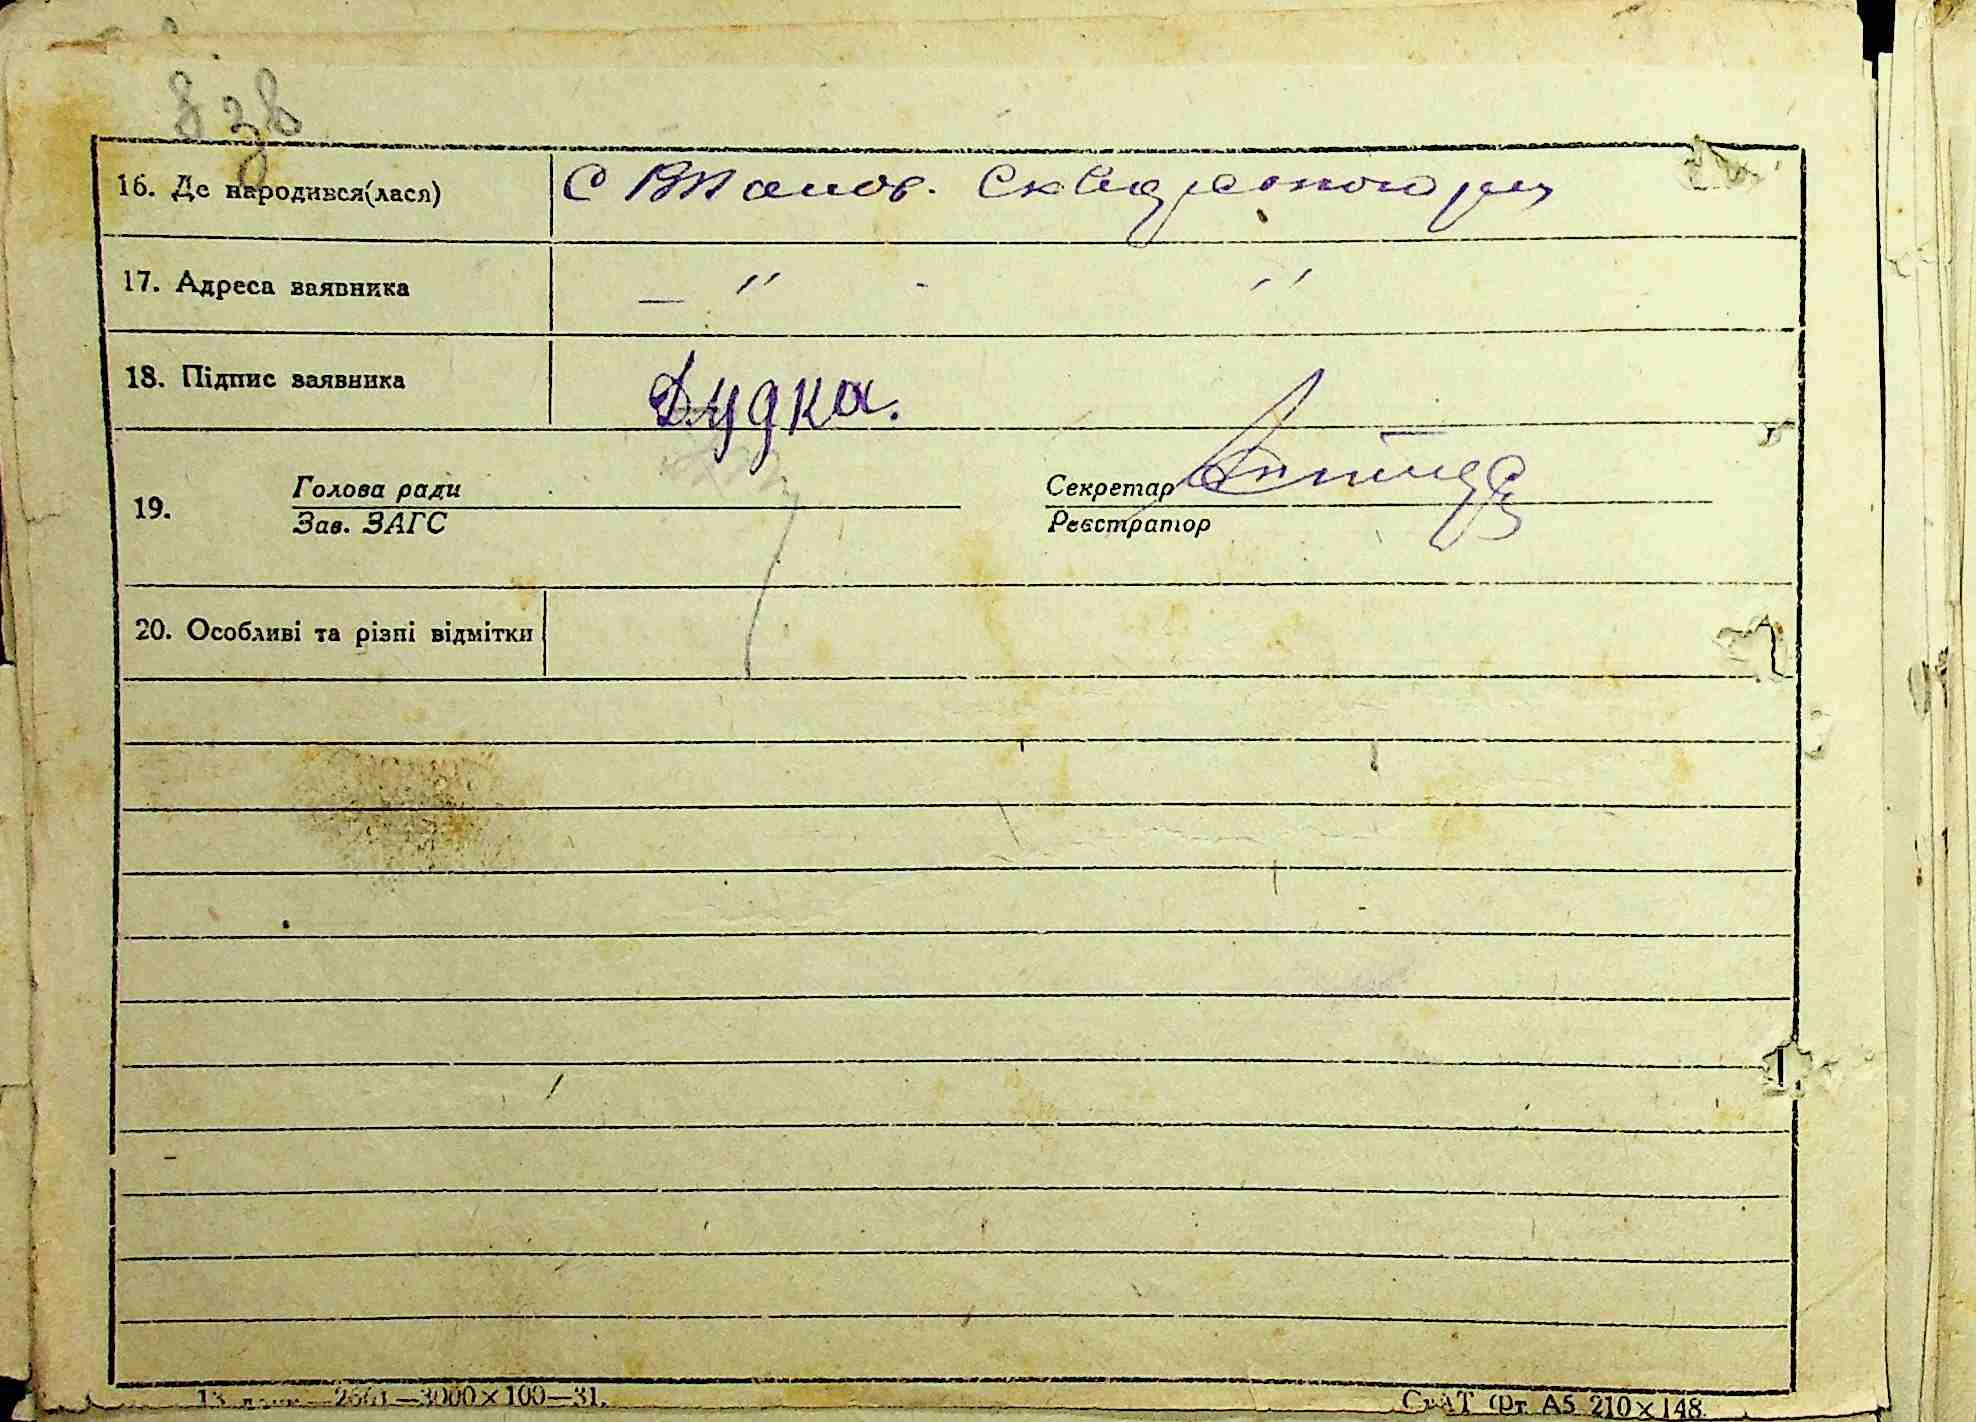 16. Де народився(лася) С
17. Адреса заявника — " - "
18. Підпис заявника Дудка.
Голова ради Секретар
19.
Зав. ЗАГС Реєстратор
20. Особливі та різні відмітки
2661—3000×100—31.
Фт. А5 210×148.